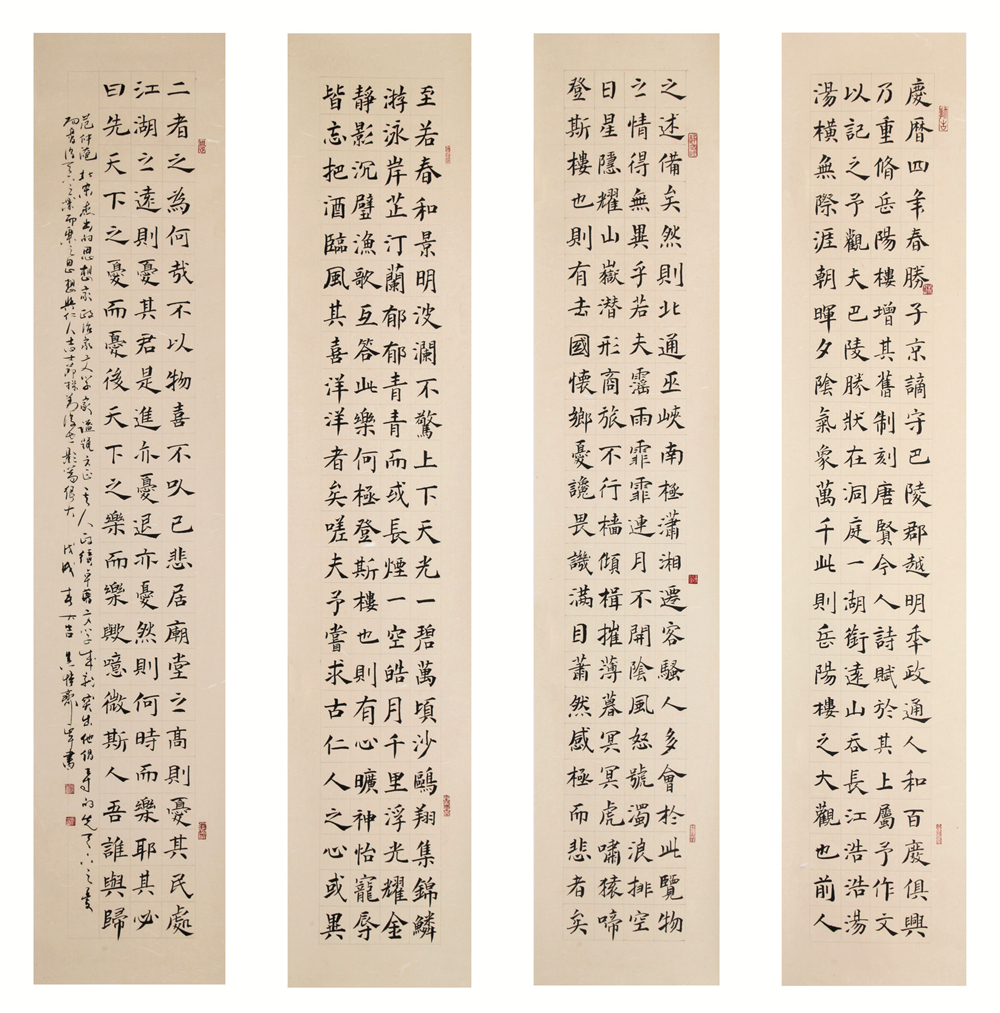 慶曆四年春勝子京謫守巴陵郡越明年政通人和百慶俱興
乃重脩岳陽樓增其舊制刻唐賢今人詩賦於其上屬予作文
以記之予觀夫巴陵勝狀在洞庭一湖銜遠山吞長江浩浩湯
湯橫無際涯朝暉夕陰氣象萬千此則岳陽樓之大觀也前人
之述備矣然則北通巫峽南極瀟湘遷客騷人多會於此覽物
之情得無異乎若夫霪雨霏霏連月不開陰風怒號濁浪排空
日星隱耀山嶽潛形商旅不行檣傾楫摧薄暮冥冥虎嘯猿啼
登斯樓也則有去國懷鄉憂讒畏譏滿目蕭然感極而悲者矣
至若春和景明波瀾不驚上下天光一碧萬頃沙鷗翔集錦鱗
游泳岸芷汀蘭郁郁青青而或長煙一空皓月千里浮光耀金
靜影沉璧漁歌互答此樂何極登斯樓也則有心曠神怡寵辱
皆忘把酒臨風其喜洋洋者矣嗟夫予嘗求古仁人之心或異
二者之為何哉不以物喜不以己悲居廟堂之高則憂其民處
江湖之遠則憂其君是進亦憂退亦憂然則何時而樂耶其必
曰先天下之憂而憂後天下之樂而樂歟噫微斯人吾誰與歸
范仲淹北宋杰出的思想家政治家文学家謚號文正 突出他倡導的先天下之憂
思想與仁人志士節操為後世影響很大 戊戌 書